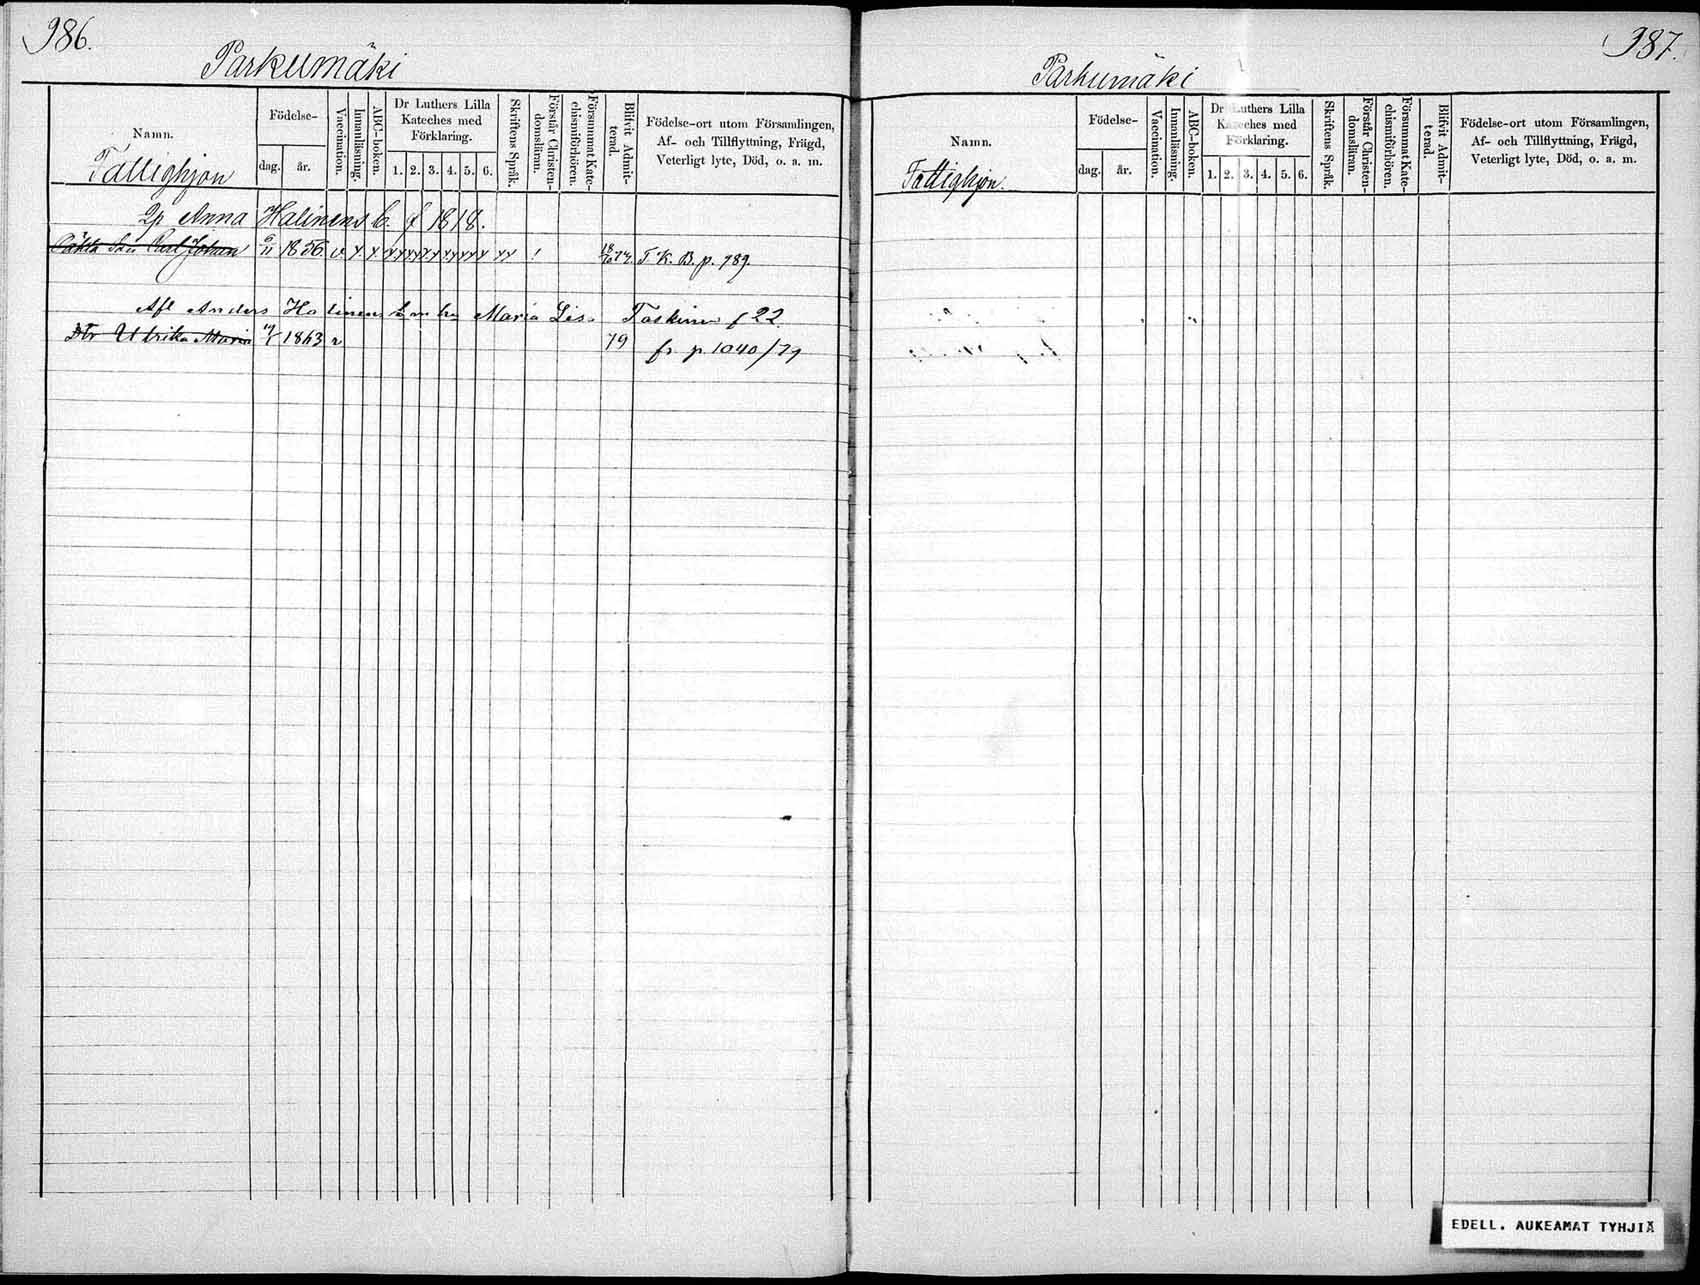 986.
Parkumäki
Namn.
Fattighjon
Födelse-
dag.
år.
Vaccination.
Innanläsning.
ABC-boken.
Dr Luthers Lilla
Kateches med
Förklaring.
1. 2. 3. 4. 5. 6.
Skriftens Språk.
Förstår Christen-
domsläran.
Försummat Kate-
chismiförhören.
Blifvit Admit-
terad.
Födelse-ort utom Församlingen,
Af- och Tillflyttning, Frägd,
Veterligt lyte, Död, o. a. m.
Anna Halinens b. f 1818.
Carl Johan 6/11 1856. v. T. K. B. p. 789.
Afl Anders Halinens Maria Lis. Taskinen f 22.
Dtr Ulrika Maria 1863 79 fr. p. 1040/79
987.
Parkumäki
Namn.
Fattighjon.
Födelse-
dag.
år.
Vaccination.
Innanläsning.
ABC-boken.
Dr Luthers Lilla
Kateches med
Förklaring.
1. 2. 3. 4. 5. 6.
Skriftens Språk.
Förstår Christen-
domsläran.
Försummat Kate-
chismiförhören.
Blifvit Admit-
terad.
Födelse-ort utom Församlingen,
Af- och Tillflyttning, Frägd,
Veterligt lyte, Död, o. a. m.
EDELL. AUKEAMAT TYHJIÄ